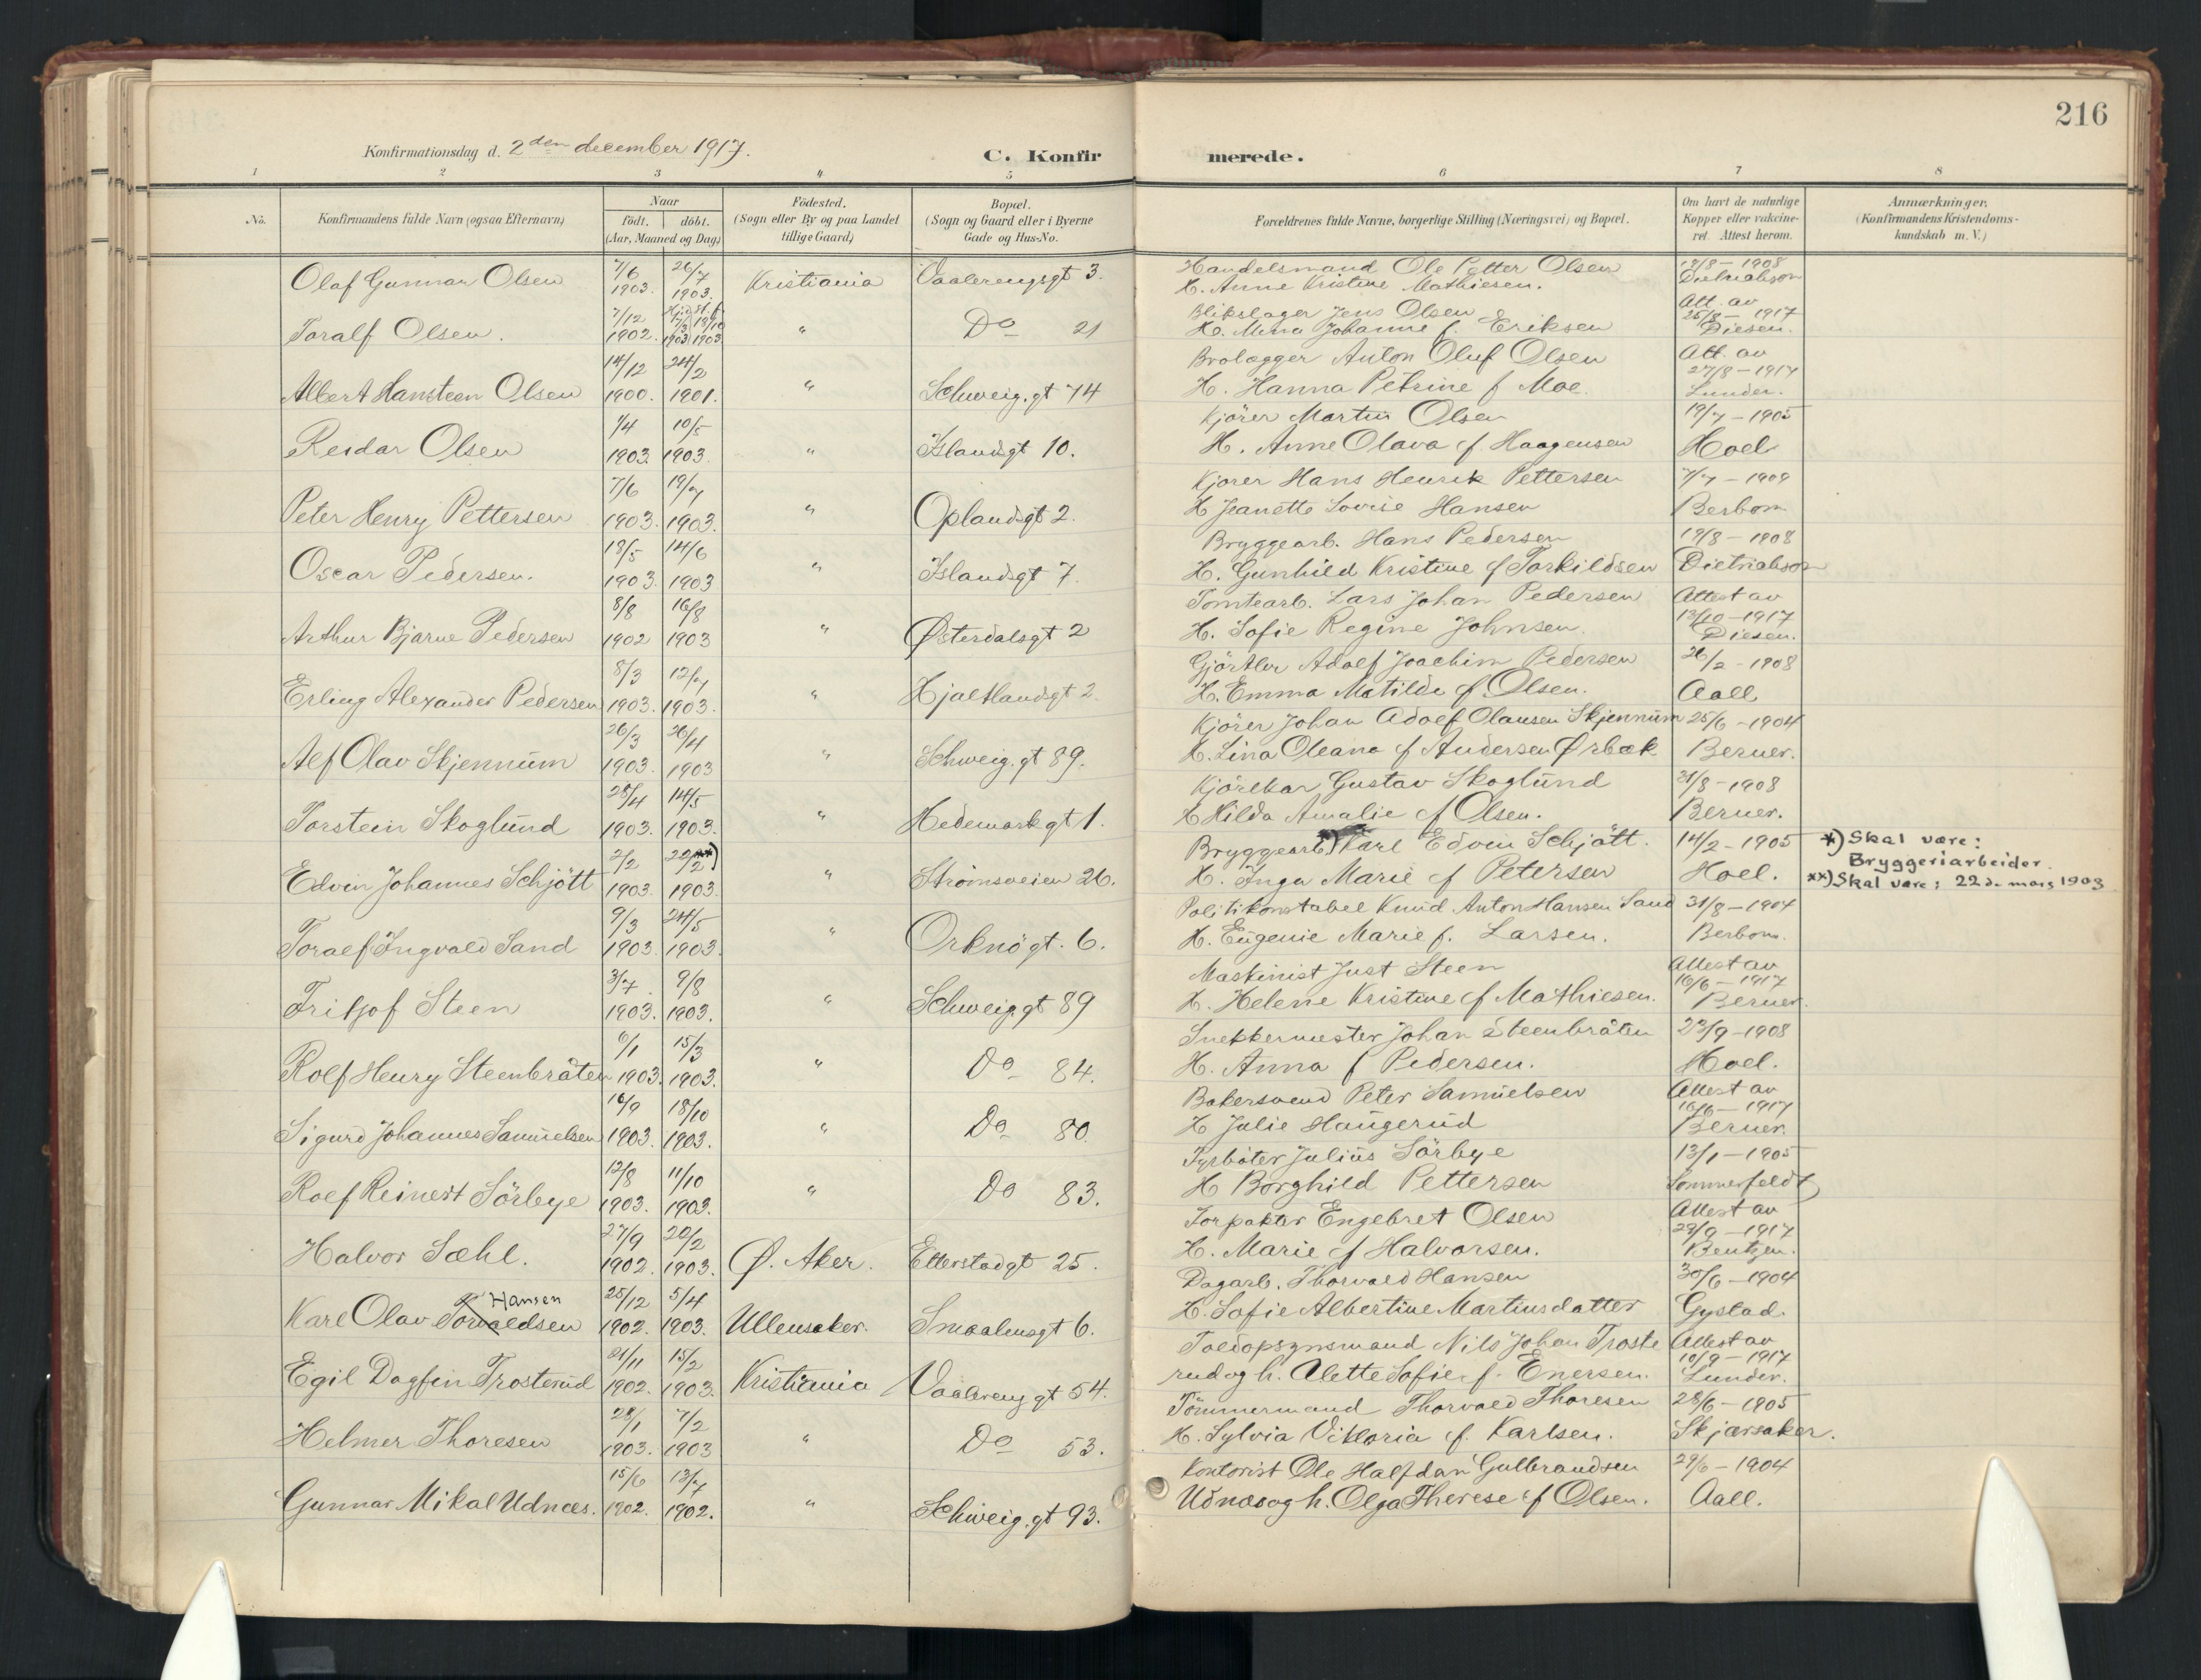 216
Konfirmationsdag d. 2den december 1917.
C. Konfirmerede.
1 2 3 4 5 6 7 8
No.
Konfirmandens fulde Navn (ogsaa Efternavn)
Naar
födt. döbt.
(Aar, Maaned og Dag.)
Födested.
(Sogn eller By og paa Landet
tillige Gaard)
Bopæl.
(Sogn og Gaard eller i Byerne
Gade og Hus-No.
Forældrenes fulde Navne, borgerlige Stilling (Næringsvei) og Bopæl.
Om havt de naturlige
Kopper eller vakcine-
ret. Attest herom.
Anmærkninger,
(Konfirmandens Kristendoms-
kundskab m. V.)
Olaf Gunnar Olsen 7/6 1903. 26/7 1903. Kristiania Vaalerengsgt 3.
Handelsmand Ole Petter Olsen
H. Anne Kristine Mathiesen.
19/8 – 1908
Dietrichson
Toralf Olsen. 7/12 1902. 1903 1903 " Do 21
Blikslager Jens Olsen &
H. Mina Johanne f. Eriksen
Att. av
25/8 – 1917
Diesen.
Albert Hansteen Olsen 14/12 1900. 24/2 1901. " Schweig. gt 74
Brolægger Anton Oluf Olsen
H. Hanna Petrine f Moe
Att. av
27/8 – 1917
Lunder.
Reidar Olsen 1/4 1903 10/5 1903. " Islandsgt 10.
Kjörer Martin Olsen
H. Anne Olava f Haagensen
19/7 – 1905
Hoel
Peter Henry Pettersen 7/6 1903. 19/7 1903. " Oplandsgt 2.
Kjörer Hans Henrik Pettersen
H Jeanette Lovise Hansen
7/7 – 1909
Berbom
Oscar Pedersen. 18/5 1903. 14/6 1903 " Islandsgt 7.
Bryggearb. Hans Pedersen
H. Gunhild Kristine f Torkildsen
19/8 – 1908
Dietrichson
Arthur Bjarne Pedersen 8/8 1902 16/8 1903 " Østerdalsgt 2
Tomtearb. Lars Johan Pedersen
H. Sofie Regine Johnsen.
Attest av
13/10 – 1917
Diesen.
Erling Alexander Pedersen 8/3 1903. 12/7 1903. " Hjaltlandsgt 2.
Gjörtler Adolf Joachim Pedersen
H. Emma Matilde f Olsen.
26/2 – 1908
Aall
Alf Olav Skjennum 26/3 1903. 26/4 1903 " Schweig. gt 89.
Kjörer Johan Adolf Olausen Skjennum
H. Lina Oleana f Andersen Ørbæk
25/6 – 1904
Berner.
Torstein Skoglund 28/4 1903. 14/5 1903. " Hedemarkgt 1.
Kjörekar Gustav Skoglund
H Hilda Amalie f Olsen.
31/8 – 1908
Berner.
Edvin Johannes Schjött 2/2 1903. 22/2 **) 1903. " Strömsveien 26.
Bryggearb. *) Karl Edvin Schjött.
H. Inga Marie f Petersen
14/2 – 1905
Hoel.
*) Skal være:
Bryggeriarbeider.
**) Skal være: 22de mars 1903
Toralf Ingvald Sand 9/3 1903. 24/5 1903. " Orknögt. 6.
Politikonstabel Knud Anton Hansen Sand
H. Eugenie Marie f. Larsen.
31/8 – 1904
Berbom.
Fritjof Steen 3/7 1903. 9/8 1903. " Schweig. gt 89
Maskinist Just Steen
H. Helene Kristine f Mathiesen.
Attest av
16/6 – 1917
Berner.
Rolf Henry Steenbråten 6/1 1903. 15/3 1903. " Do 84.
Snekkermester Johan Steenbråten
H. Anna f Pedersen.
23/9 – 1908
Hoel.
Sigurd Johannes Samuelsen 16/9 1903. 18/10 1903. " Do 80.
Bakersvend Peter Samuelsen
H Julie Haugerud
Attest av
16/6 – 1917
Berner.
Rolf Reinert Sörbye 12/8 1903. 11/10 1903. " Do 83.
Fyrböter Julius Sörbye
H Borghild Pettersen
13/1 – 1905
Sommerfeldt
Halvor Sæhl. 27/9 1902. 20/2 1903. Ø. Aker. Etterstadgt 25.
Forpakter Engebret Olsen
H. Marie f Halvorsen.
Attest av
29/9 – 1917
Bentzen.
Hansen
Karl Olav Torvaldsen 25/12 1902. 5/4 1903. Ullensaker. Smaalensgt 6.
Dagarb. Thorvald Hansen
H. Sofie Albertine Martinsdatter
30/6 – 1904
Gystad.
Egil Dagfin Trosterud 21/11 1902. 15/2 1903. Kristiania Vaalereng gt 54.
Toldopsynsmand Nils Johan Troste
rud og h. Alette Sofie f. Enersen.
Attest av
10/9 – 1917
Lunder.
Helmer Thoresen 28/1 1903. 7/2 1903 " Do 53.
Tömmermand Thorvald Thoresen
H. Sylvia Viktoria f. Karlsen.
28/6 – 1905
Skjærsaker.
Gunnar Mikal Udnæs. 15/6 1902. 13/7 1902. " Schweig. gt 93.
Kontorist Ole Halfdan Gulbrandsen
Udnæs og h. Olga Therese f Olsen.
29/6 – 1904
Aall.